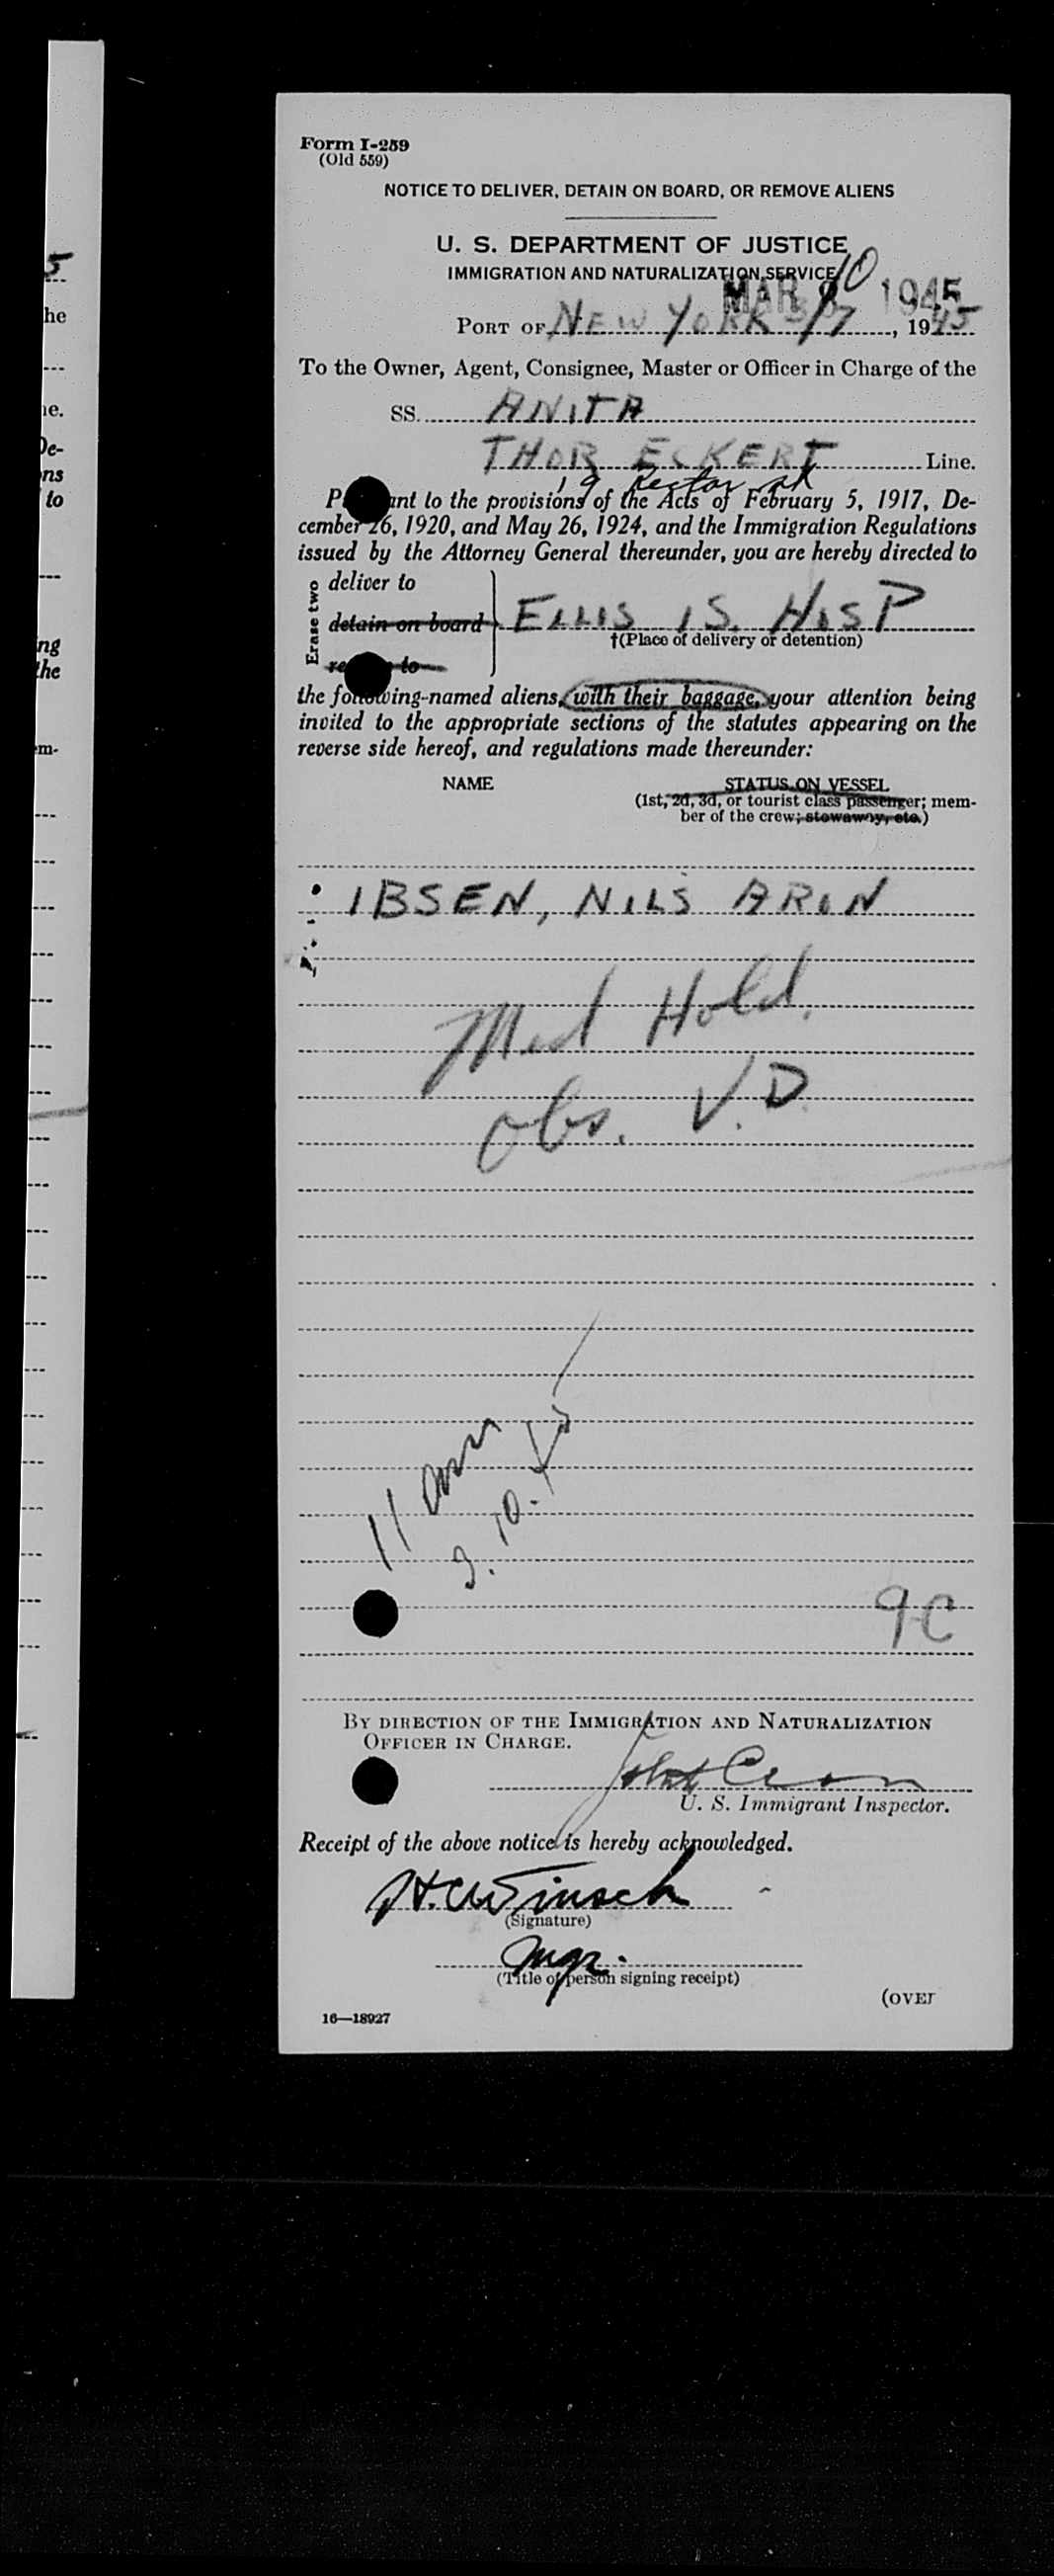 Form I-259
(Old 559)
NOTICE TO DELIVER, DETAIN ON BOARD, OR REMOVE ALIENS
U. S. DEPARTMENT OF JUSTICE
IMMIGRATION AND NATURALIZATION SERVICE
MAR 10 1945
PORT OF NEW YORK 3/7, 1945
To the Owner, Agent, Consignee, Master or Officer in Charge of the
SS. ANITA
THOR ECKERT Line.
19 Rector st
P ant to the provisions of the Acts of February 5, 1917, De-
cember 26, 1920, and May 26, 1924, and the Immigration Regulations
issued by the Attorney General thereunder, you are hereby directed to
Erase two
deliver to
detain on board ELLIS IS. HOSP
†(Place of delivery or detention)
re to
the following-named aliens, with their baggage, your attention being
invited to the appropriate sections of the statutes appearing on the
reverse side hereof, and regulations made thereunder:
NAME STATUS ON VESSEL
(1st, 2d, 3d, or tourist class passenger; mem-
ber of the crew; stowaway, etc.)
IBSEN, NILS ARON
Med Hold.
obs. V.D.
11 am
3.10.45
9C
BY DIRECTION OF THE IMMIGRATION AND NATURALIZATION
OFFICER IN CHARGE.
U. S. Immigrant Inspector.
Receipt of the above notice is hereby acknowledged.
H.C. Winsch
(Signature)
Mgr.
(Title of person signing receipt)
(OVER
16—18927
5
he
ie.
De-
ns
to
ng
the
m-